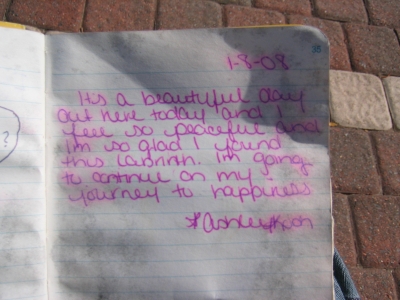 1-8-08
It's a beautiful day
out here today and I
feel so peaceful and
I'm so glad I found
this Labrinth. I'm going
to continue on my
journey to happiness
?